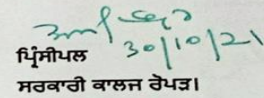 30/10/21
ਪ੍ਰਿੰਸੀਪਲ
ਸਰਕਾਰੀ ਕਾਲਜ ਰੋਪੜ।